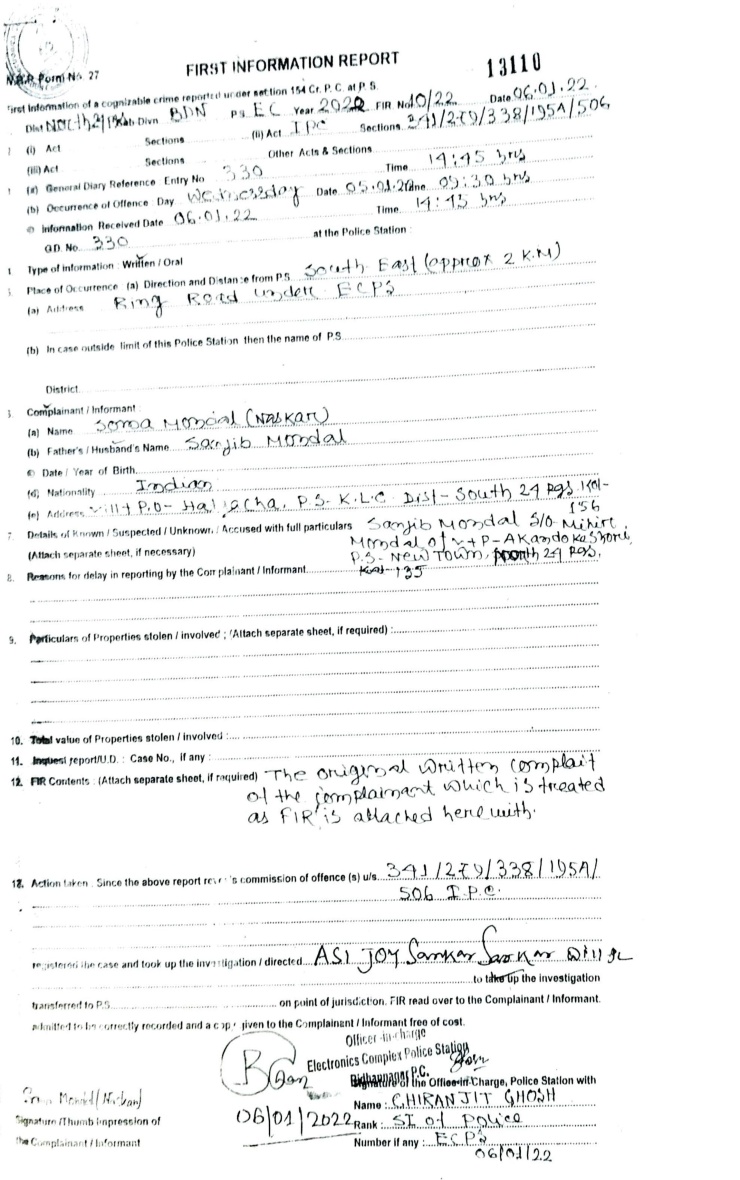 N.B.P. Form No. 27
FIRST INFORMATION REPORT
13110
First Information of a cognizable crime reported under section 154 Cr. P. C. at P. S.
Dist North 24 Divn BDN P.S. EC Year 2022 FIR No 10/22 Date 06.01.22
(i) Act Sections (ii) Act IPC Sections 341/279/338/195A/506
(iii) Act Sections Other Acts & Sections
(a) General Diary Reference Entry No 330 Time 14:45 hrs
(b) Occurrence of Offence Day Wednesday Date 05.01.22 Time 09:30 hrs
© Information Received Date 06.01.22 Time 14:45 hrs
G.D. No. 330 at the Police Station :
Type of information : Written / Oral
Place of Occurrence (a) Direction and Distance from P.S. South East (approx 2 K.M)
(a) Address Ring Road under ECPS
(b) In case outside limit of this Police Station then the name of P.S.
District
Complainant / Informant :
(a) Name Soma Mondal (Naskar)
(b) Father's / Husband's Name Sanjib Mondal
© Date / Year of Birth
(d) Nationality Indian
(e) Address Vill+P.O- P.S- K.L.C Dist- South 24 Pgs Kol-
156
7. Details of Known / Suspected / Unknown / Accused with full particulars Sanjib Mondal S/O Mihir
(Attach separate sheet, if necessary) Mondal of v+P-Akandokeshori,
P.S- New Town, North 24 Pgs,
8. Reasons for delay in reporting by the Complainant / Informant Kol-135
9. Particulars of Properties stolen / involved ; (Attach separate sheet, if required) :
10. Total value of Properties stolen / involved :
11. Inquest report/U.D. : Case No., if any :
12. FIR Contents : (Attach separate sheet, if required) The original written complait
of the complainant which is treated
as FIR is attached here with.
13. Action taken : Since the above report commission of offence (s) u/s. 341/279/338/195A/
506 I.P.C.
registered the case and took up the investigation / directed ASI Joy Sankar Sarkar
to take up the investigation
transferred to P.S. on point of jurisdiction. FIR read over to the Complainant / Informant.
admitted to be correctly recorded and a copy given to the Complainant / Informant free of cost.
Officer-in-charge
Electronics Complex Police Station
Bidhannagar P.C.
Signature of the Officer-in-Charge, Police Station with
Soma Mondal (Naskar)
Name : CHIRANJIT GHOSH
Signature /Thumb Impression of 06/01/2022 Rank : SI of Police
the Complainant / Informant Number if any : ECPS
06/01/22